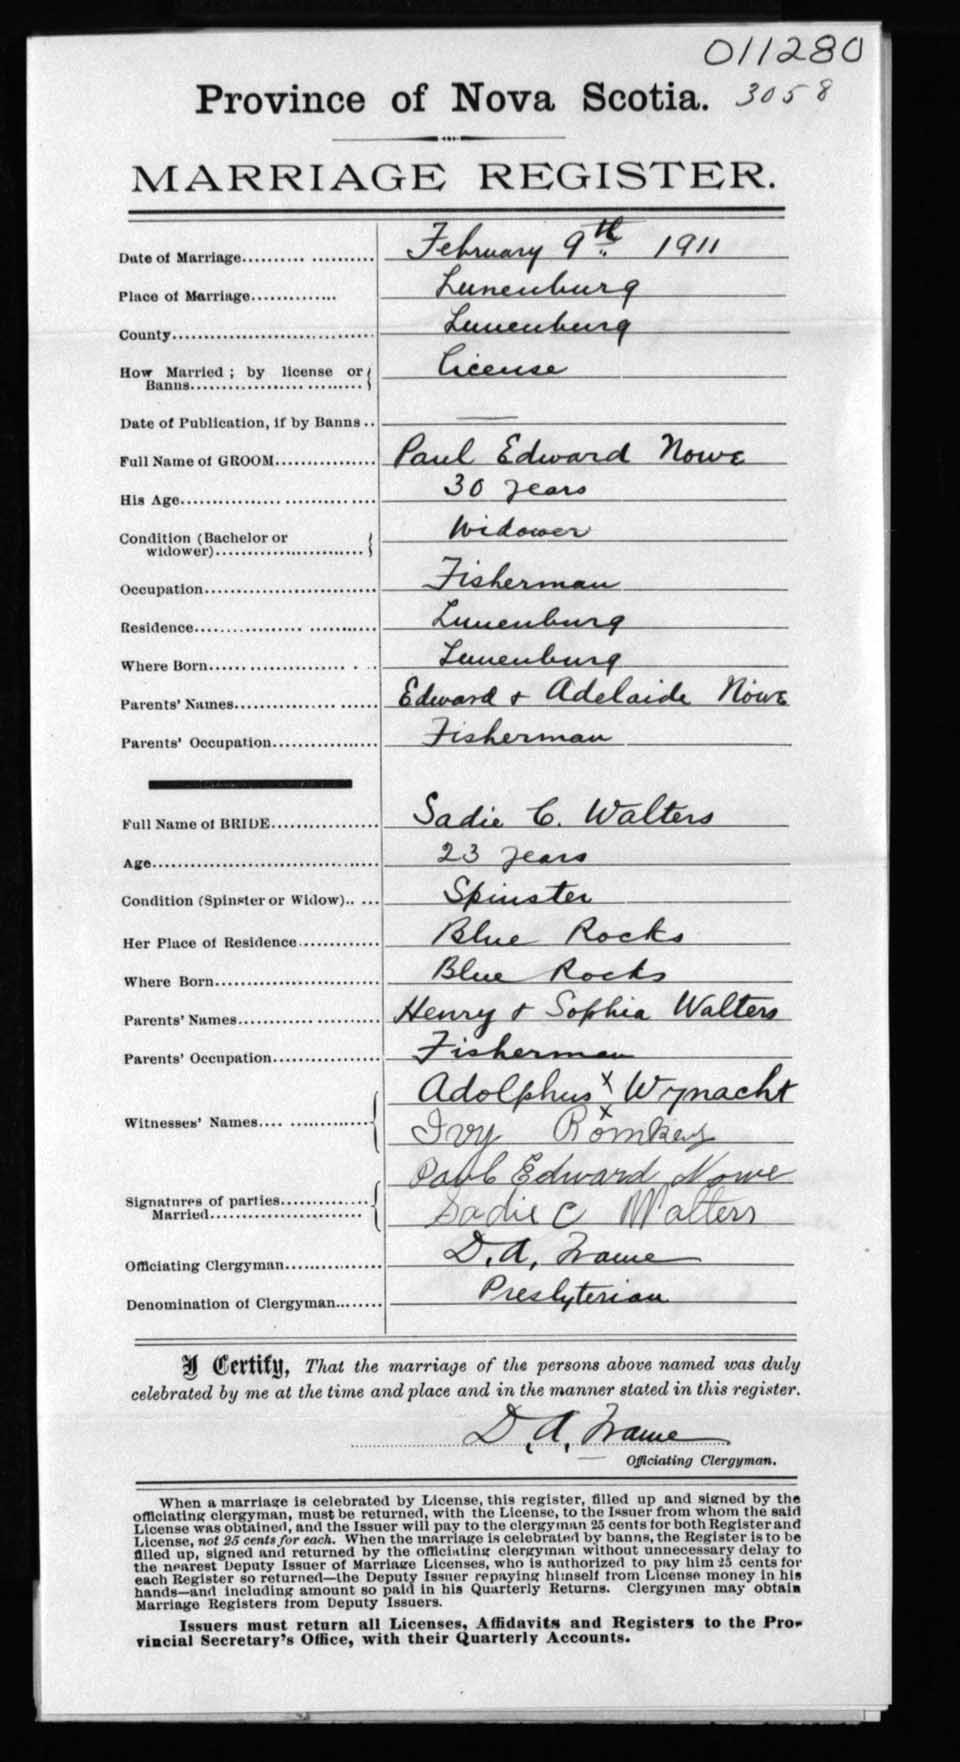 011280
Province of Nova Scotia. 3058
MARRIAGE REGISTER.
Date of Marriage.................... February 9th 1911
Place of Marriage.............. Lunenburg
County................................ Lunenburg
How Married ; by license or License
Banns.............................
Date of Publication, if by Banns .. —
Full Name of GROOM................ Paul Edward Nowe
His Age............................... 30 years
Condition (Bachelor or Widower
widower)........................
Occupation........................... Fisherman
Residence........................... Lunenburg
Where Born........................ Lunenburg
Parents' Names..................... Edward & Adelaide Nowe
Parents' Occupation................. Fisherman
Full Name of BRIDE................. Sadie C. Walters
Age.................................... 23 years
Condition (Spinster or Widow)..... Spinster
Her Place of Residence............. Blue Rocks
Where Born......................... Blue Rocks
Parents' Names..................... Henry & Sophia Walters
Parents' Occupation................. Fisherman
Adolphus x Wynacht
Witnesses' Names.................
Ivy x Romkey
Paul Edward Nowe
Signatures of parties..............
Married........................ Sadie C Walters
Officiating Clergyman................ D. A. Frame
Denomination of Clergyman........ Presbyterian
I Certify, That the marriage of the persons above named was duly
celebrated by me at the time and place and in the manner stated in this register.
D. A. Frame
Officiating Clergyman.
When a marriage is celebrated by License, this register, filled up and signed by the
officiating clergyman, must be returned, with the License, to the Issuer from whom the said
License was obtained, and the Issuer will pay to the clergyman 25 cents for both Register and
License, not 25 cents for each. When the marriage is celebrated by banns, the Register is to be
filled up, signed and returned by the officiating clergyman without unnecessary delay to
the nearest Deputy Issuer of Marriage Licenses, who is authorized to pay him 25 cents for
each Register so returned—the Deputy Issuer repaying himself from License money in his
hands—and including amount so paid in his Quarterly Returns. Clergymen may obtain
Marriage Registers from Deputy Issuers.
Issuers must return all Licenses, Affidavits and Registers to the Pro-
vincial Secretary's Office, with their Quarterly Accounts.